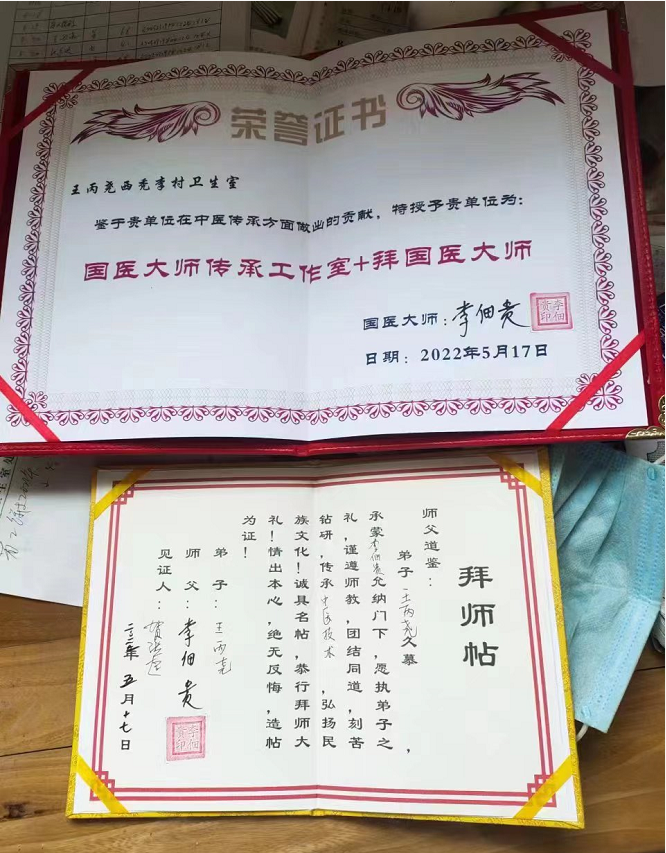 荣誉证书
王丙尧西秃李村卫生室
鉴于贵单位在中医传承方面做出的贡献，特授予贵单位为：
国医大师传承工作室+拜国医大师
国医大师：李佃贵
李佃
贵印
日期：2022年5月17日
拜师帖
师父道鉴：
弟子王丙尧久慕，
承蒙李佃贵允纳门下，愿执弟子之
礼，谨遵师教，团结同道，刻苦
钻研，传承中医技术，弘扬民
族文化！诚具名帖，恭行拜师大
礼！情出本心，绝无反悔，造帖
为证！
弟子：王丙尧
师父：李佃贵
李佃
贵印
见证人：
二〇二二年五月十七日